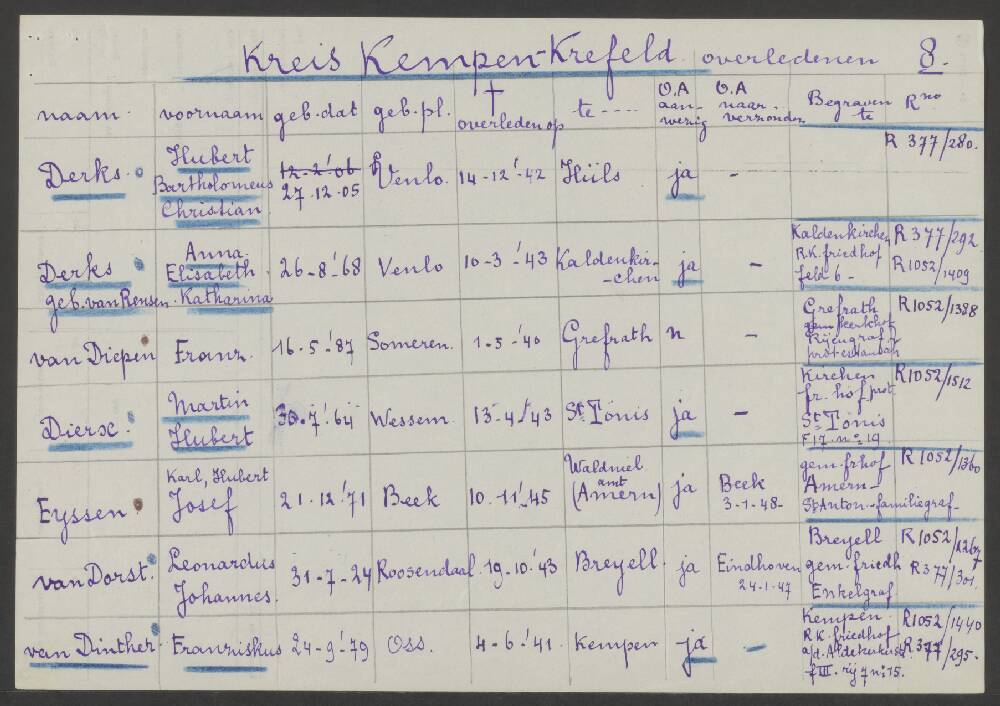 Kreis Kempen-Krefeld overledenen 8.
naam. voornaam geb.dat geb.pl. † overleden op te ---- O.A aan-wezig O.A naar verzonden Begraven te R no
Derks. Hubert Bartholomeus Christian 12-2-'06 27.12.05 Venlo. 14-12-'42 Hüls ja - R 377/280.
Derks geb. van Rensen. Anna Elisabeth Katharina 26-8-'68 Venlo 10-3-'43 Kaldenkir--chen ja - Kaldenkirchen R.K. friedhof feld 6- R 377/292 R 1052/1409
van Diepen Franz. 16-5-'87 Someren. 1-5-'40 Grefrath n - Grefrath gem. kerkhof Rijengraf R1052/1388
Dierx. Martin Hubert 30.7.'64 Wessem. 13-4-'43 St. Tönis ja - Kirchen fr. hof prot St. Tönis F 17. no 19. R1052/1512
Eyssen Karl, Hubert Josef 21-12-'71 Beek 10-11-'45 Waldniel amt (Amern) ja Beek 3-1-48- gem. frhof Amern- St Anton-familiegraf- R 1052/1360
van Dorst. Leonardus Johannes. 31-7-24 Roosendaal. 19-10-'43 Breyell. ja Eindhoven 24-1-47 Breyell gem. friedh Enkelgraf R1052/1267 R 377/301.
van Dinther. Franziskus 24-9-'79 Oss. 4-6-'41 Kempen ja - Kempen. R.K. friedhof f III. rij 7 no 15. R1052/1440 R. 377/295-